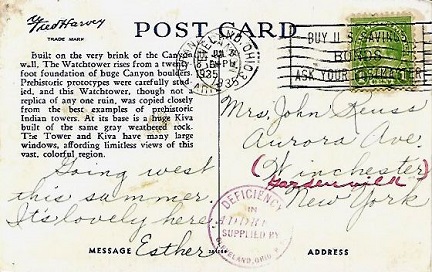 Fred Harvey
TRADE MARK
POST CARD
Built on the very brink of the Canyon
wall, The Watchtower rises from a twenty
foot foundation of huge Canyon boulders.
Prehistoric prototypes were carefully stud-
ied, and this Watchtower, though not a
replica of any one ruin, was copied closely
from the best examples of prehistoric
Indian towers. At its base is a huge Kiva
built of the same gray weathered rock.
The Tower and Kiva have many large
windows, affording limitless views of this
vast, colorful region.
CLEVELAND, OHIO
1935
BUY U.S. SAVINGS
BONDS
ASK YOUR POSTMASTER
Going west
this summer.
It's lovely here
MESSAGE Esther
Mrs. John Reuss
Aurora Ave.
(Winchester)
Gardenville
New York
DEFICIENCY
IN
ADDRESS
SUPPLIED BY
CLEVELAND, OHIO
ADDRESS